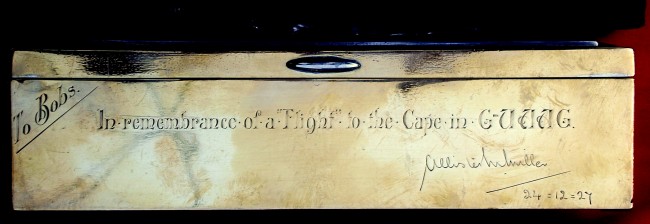 To Bobs.
In·remembrance·of·a·"Flight"·to·the·Cape·in·G-UAAG.
Allister M Miller
24=12=27